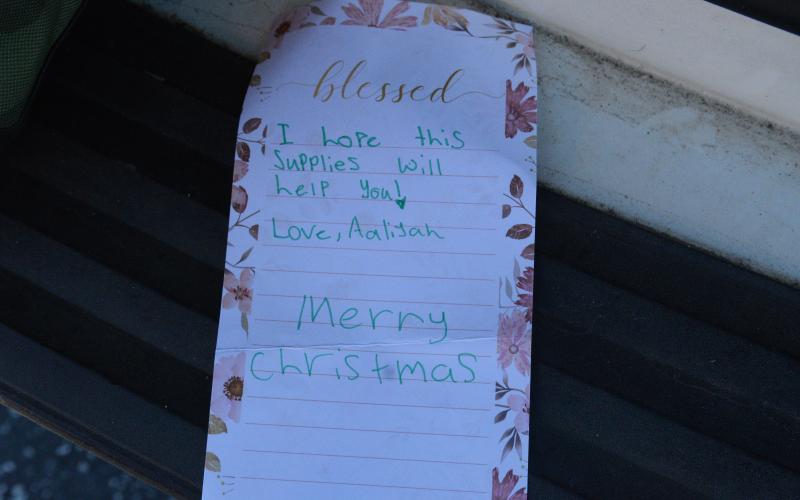 blessed
I hope this
supplies will
help you!
Love, Aaliyah
Merry
Christmas